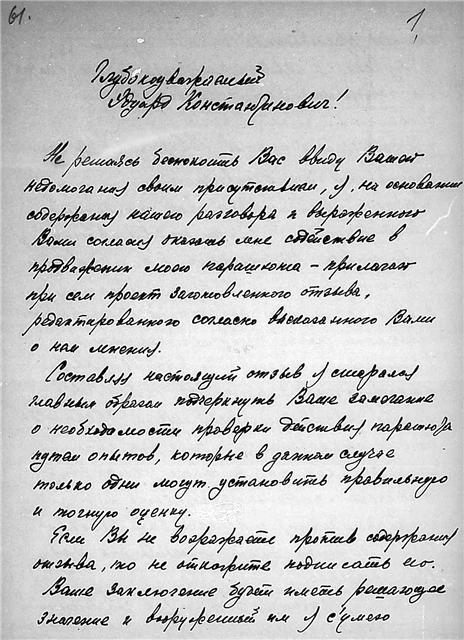 61.
1
Глубокоуважаемый
Эдуард Константинович!
Не решаясь беспокоить Вас ввиду Вашего
недомогания своим присутствием, я, на основании
содержания нашего разговора и выраженного
Вами согласия оказать мне содействие в
продвижении моего парашюта – прилагаю
при сем проект заготовленного отзыва,
редактированного согласно высказанного Вами
о нем мнения.
Составляя настоящий отзыв я старался
главным образом подчеркнуть Ваше замечание
о необходимости проверки действия парашюта
путем опытов, которые в данном случае
только одни могут установить правильную
и точную оценку.
Если Вы не возражаете против содержания
отзыва, то не откажите подписать его.
Ваше заключение будет иметь решающее
значение и вооруженный им я сумею